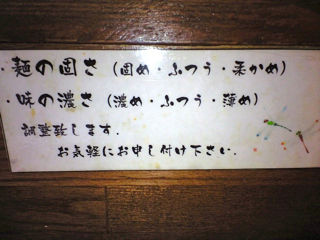 ・麺の固さ（固め・ふつう・柔かめ）
・味の濃さ（濃め・ふつう・薄め）
調整致します.
お気軽にお申し付け下さい.